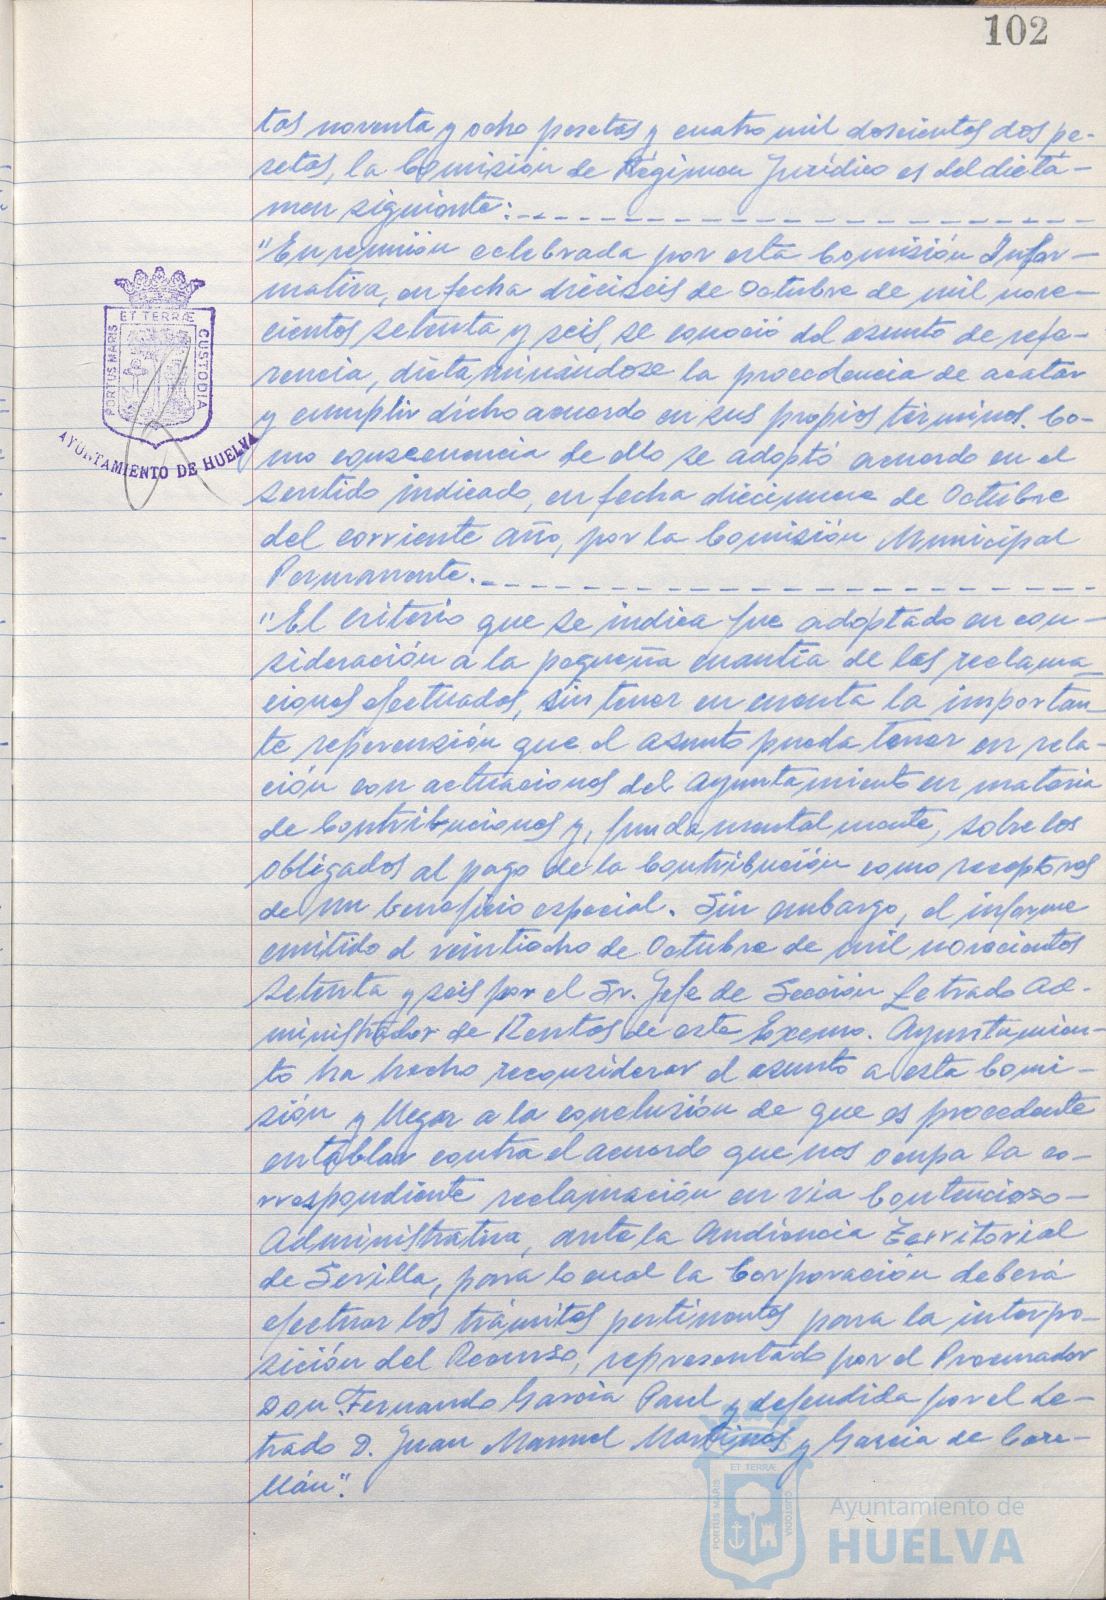 102
tas noventa y ocho pesetas y cuatro mil doscientas dos pe-
setas, la Comisión de Régimen Jurídico es del dictá-
men siguiente:
"En reunión celebrada por esta Comisión Infor-
mativa, en fecha dieciseis de Octubre de mil nove-
cientos setenta y seis, se conoció del asunto de refe-
rencia, dictaminándose la procedencia de acatar
y cumplir dicho acuerdo en sus propios términos. Co-
mo consecuencia de ello se adoptó acuerdo en el
sentido indicado, en fecha diecinueve de Octubre
del corriente año, por la Comisión Municipal
Permanente.
"El criterio que se indica fue adoptado en con-
sideración a la pequeña cuantía de las reclama-
ciones efectuadas, sin tener en cuenta la importan-
te repercusión que el asunto pueda tener en rela-
ción con actuaciones del Ayuntamiento en materia
de Contribuciones y, fundamentalmente, sobre los
obligados al pago de la Contribución como receptores
de un beneficio especial. Sin embargo, el informe
emitido el veintiocho de Octubre de mil novecientos
setenta y seis por el Sr. Jefe de Sección Letrado Ad-
ministrador de Rentas de este Excmo. Ayuntamien-
to ha hecho reconsiderar el asunto a esta Comi-
sión y llegar a la conclusión de que es procedente
entablar contra el acuerdo que nos ocupa la co-
rrespondiente reclamación en vía Contencioso-
Administrativa, ante la Audiencia Territorial
de Sevilla, para lo cual la Corporación deberá
efectuar los trámites pertinentes para la interpo-
sición del Recurso, representado por el Procurador
Don Fernando García Paul y defendida por el Le-
trado D. Juan Manuel Martínez y García de Care-
llán".
ET TERRÆ
PORTUS MARIS
CUSTODIA
AYUNTAMIENTO DE HUELVA
ET TERRÆ
PORTUS MARIS
CUSTODIA
Ayuntamiento de
HUELVA